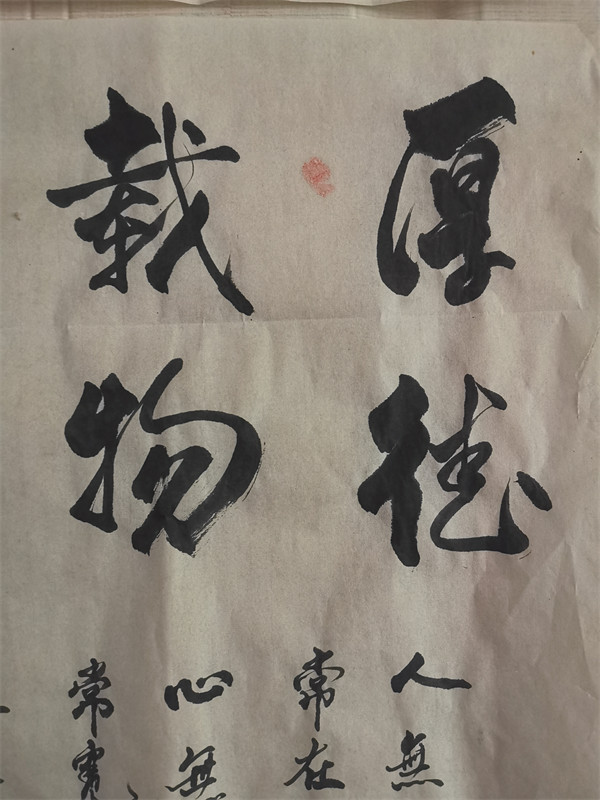 厚德
载物
人無
常在
心無
常寬